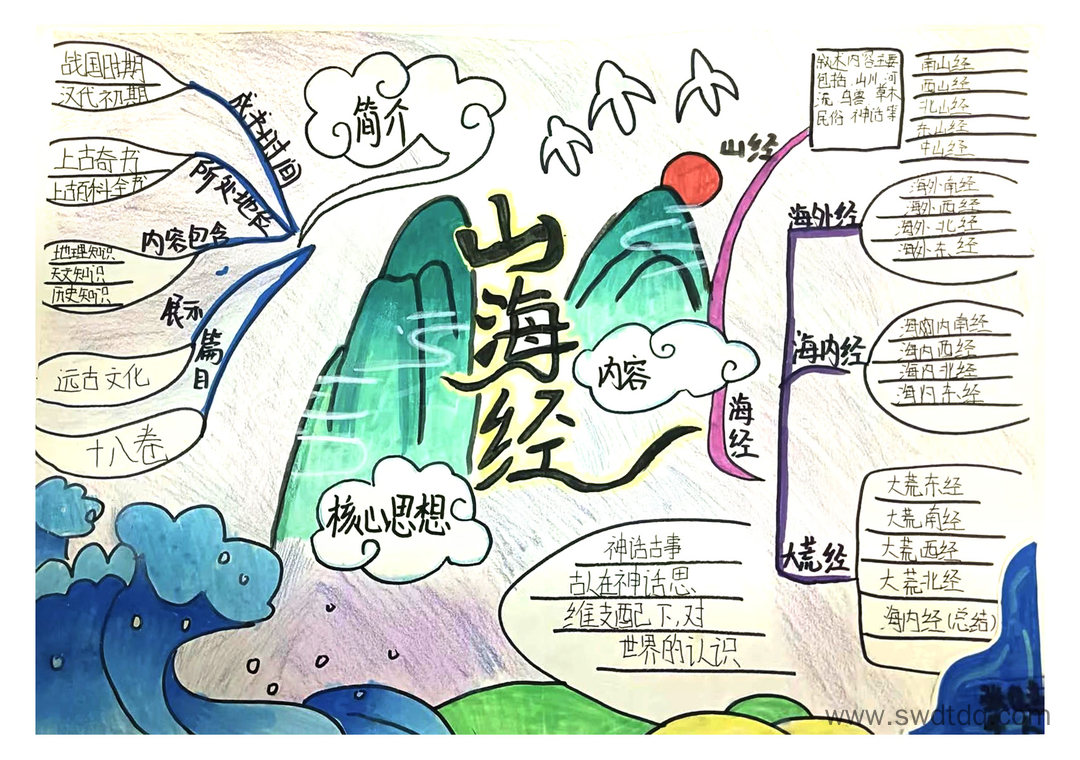 山海经
简介
成书时间
战国时期
汉代初期
所处地长
上古奇书
上古百科全书
内容包含
地理知识
天文知识
历史知识
展示
远古文化
篇目
十八卷
内容
山经
叙术内容主要
包括 山川 河
流 鸟兽 草木
民俗 神话等
南山经
西山经
北山经
东山经
中山经
海经
海外经
海外南经
海外西经
海外北经
海外东经
海内经
海内南经
海内西经
海内北经
海内东经
大荒经
大荒东经
大荒南经
大荒西经
大荒北经
海内经(总结)
核心思想
神话古事
古人在神话思
维支配下,对
世界的认识
www.swdtdq.com